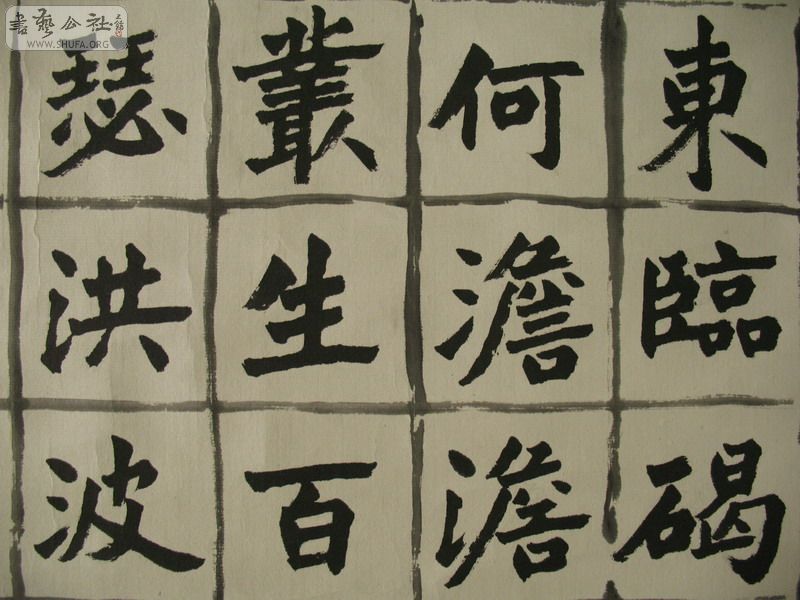 東臨碣
何澹澹
叢生百
瑟洪波
書藝公社
WWW.SHUFA.ORG